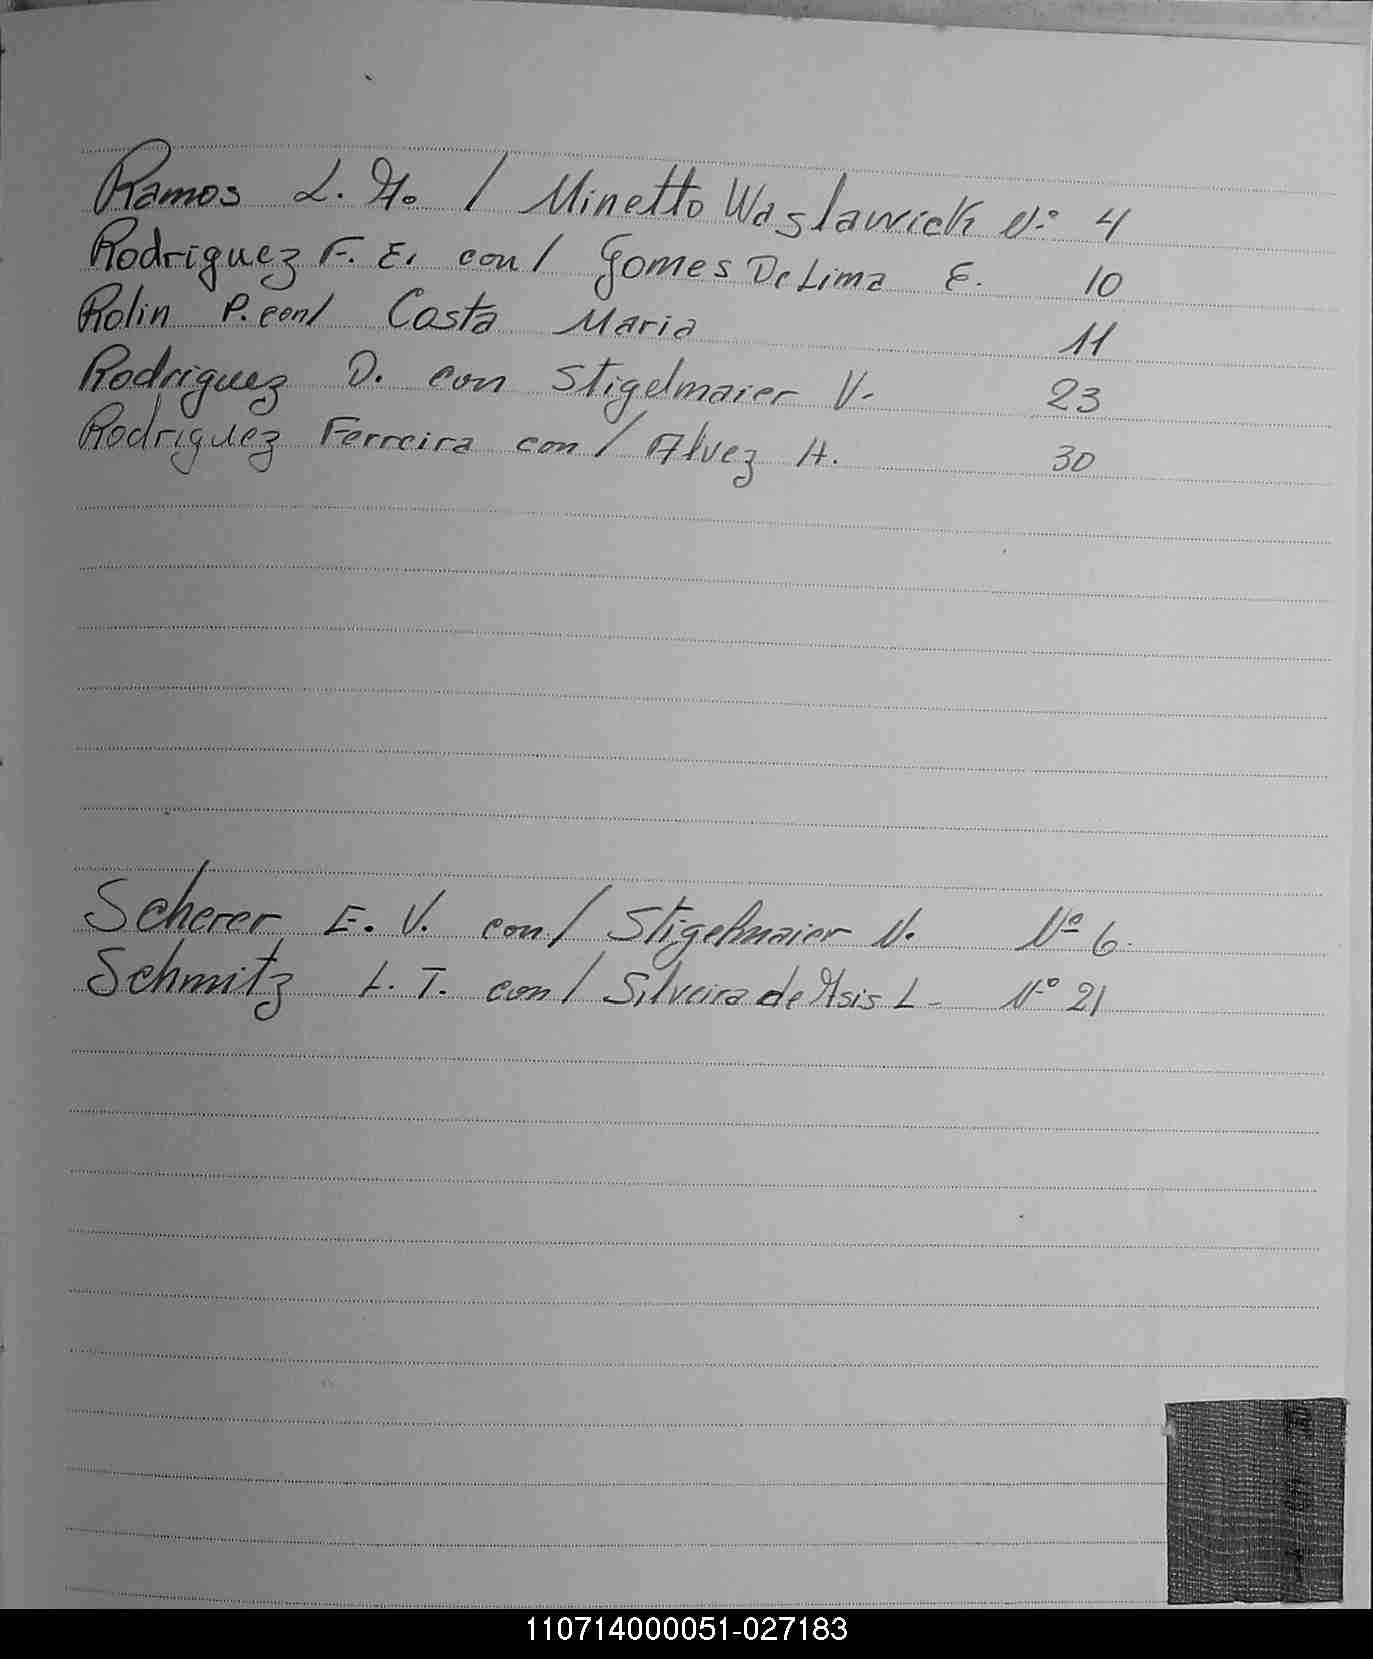 Ramos L. A. / Minetto Waslawick Nº 4
Rodriguez F. E. con/ Gomes De Lima E. 10
Rolin P. con/ Costa Maria 11
Rodriguez D. con Stigelmaier V. 23
Rodriguez Ferreira con/ Alvez H. 30
Scherer E. V. con/ Stigelmaier N. Nº 6
Schmitz L. T. con/ Silveira de Asis L- Nº 21
110714000051-027183